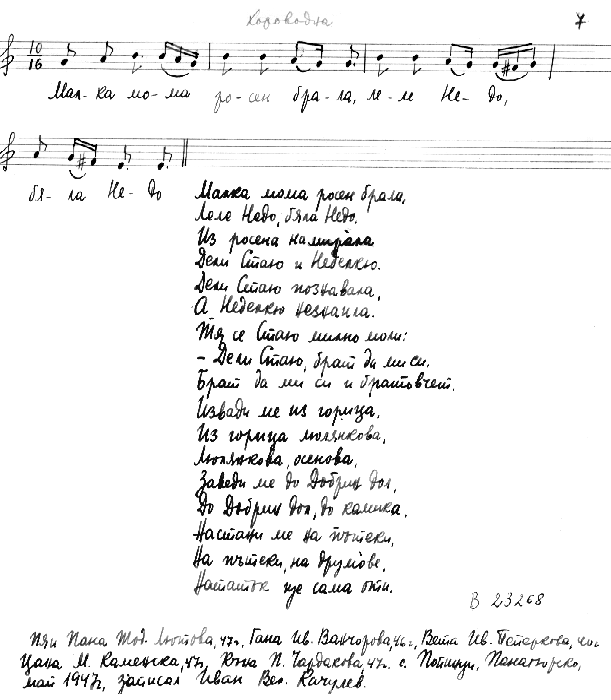 Хороводна
7
10
16
Мал-ка мо-ма ро-сен бра-ла, ле-ле Не-до,
бя-ла Не-до
Малка мома росен брала,
Леле Недо, бяла Недо.
Из росена намирала
Дели Стаю и Неделкю.
Дели Стаю познавала,
А Неделкю незнаила.
Тя се Стаю милно моли:
– Дели Стаю, брат да ми си.
Брат да ми си и братовчет.
Извади ме из горица,
Из горица люлянкова,
Люлянкова, осенова,
Заведи ме до Добрин дол,
До Добрин дол, до камика.
Настани ме на пътеки,
На пътеки, на друмове.
Нататок ще сама оти.
В 23268
Пяи Пана Тод. Лютова, 47г., Гана Ив. Ванчорова, 46г., Вета Ив.
Цана М. Каменска, 47г, Юна П. Чардакова 47г. с. Попинци, Панагюрско,
май 1947г, записал Иван Вел. Качулев.